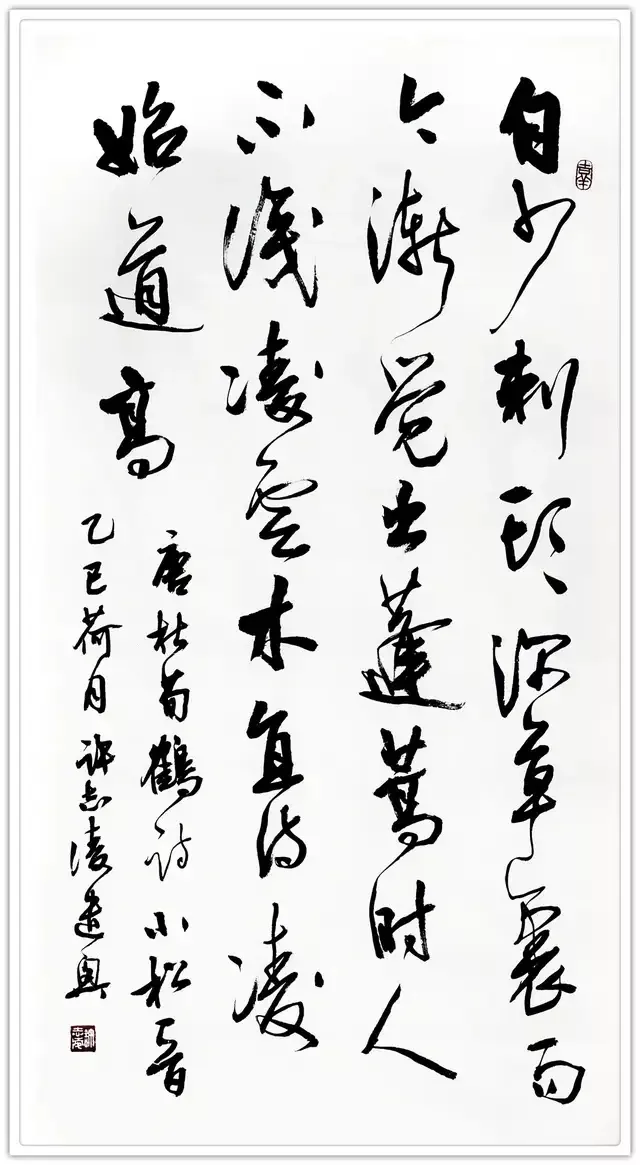 自小刺头深草裏而
今渐觉出蓬蒿时人
不识凌云木直待凌
始道高
唐杜荀鶴诗小松一首
乙巳荷月许志凌遣興